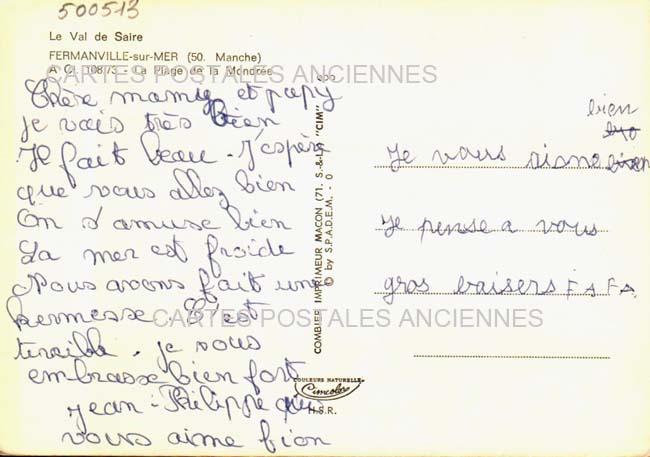 500513
Le Val de Saire
FERMANVILLE-sur-MER (50. Manche)
A CI. 108/73 - La Plage de la Mondrée
CARTES POSTALES ANCIENNES
Chère mamy et papy
je vais très bien
Il fait beau. J'espère
que vous allez bien
On s'amuse bien
La mer est froide
Nous avons fait une
kermesse. C'est
terrible. je vous
embrasse bien fort
Jean-Philippe qui
vous aime bien
CARTES POSTALES ANCIENNES
COMBIER IMPRIMEUR MACON (71. S.-&-L.) "CIM"
© by S.P.A.D.E.M. - 0
COULEURS NATURELLES
Cimcolor
H.S.R.
bien
Je vous aime
Je pense a vous
gros baisers FAFA